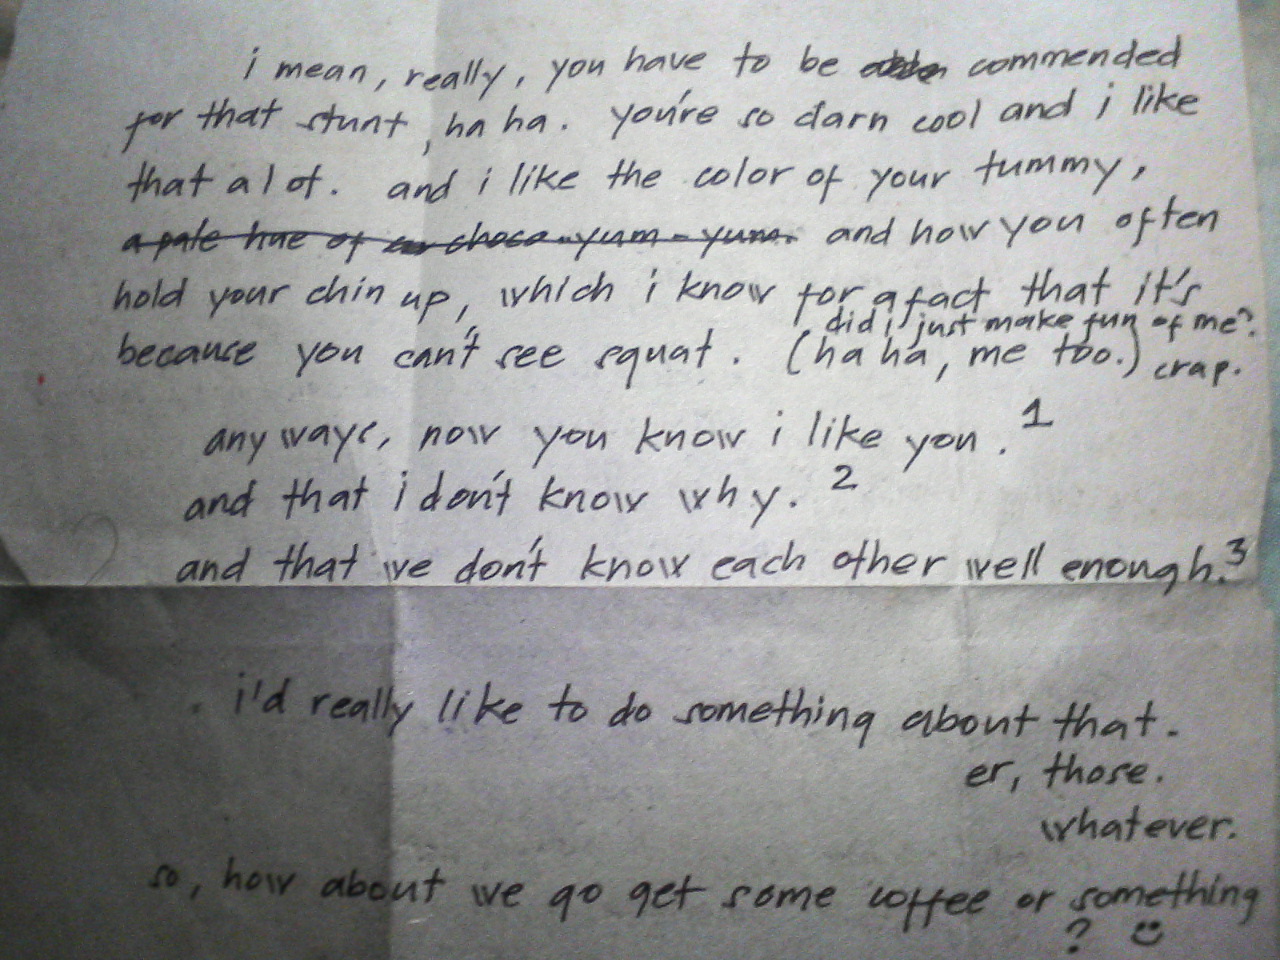 i mean, really, you have to be commended
for that stunt, ha ha. you're so darn cool and i like
that a lot. and i like the color of your tummy,
a pale hue of choco-yum-yum. and how you often
hold your chin up, which i know for a fact that it's
did i just make fun of me?
because you can't see squat. (ha ha, me too.) crap.
any ways, now you know i like you.1
and that i don't know why.2
and that we don't know each other well enough.3
i'd really like to do something about that.
er, those.
whatever.
so, how about we go get some coffee or something
? :)